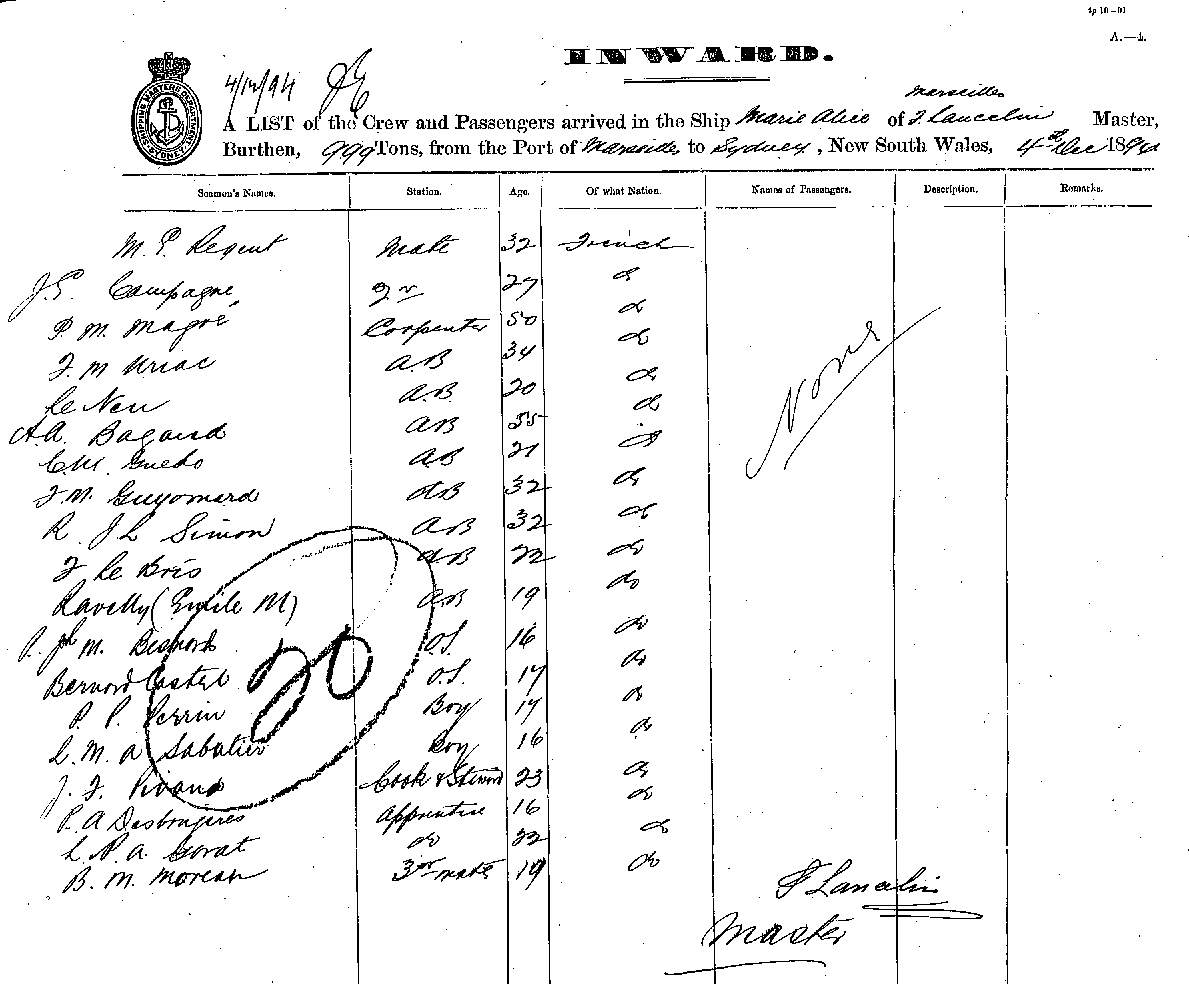 4p 10—01
A.—4.
INWARD.
SHIPPING MASTERS DEPARTMENT SYDNEY
4/12/94
Marseilles
A LIST of the Crew and Passengers arrived in the Ship Marie Alice of F. Lancelin Master,
Burthen, 999 Tons, from the Port of Marseilles to Sydney, New South Wales, 4th Dec 1894
Seamen's Names. Station. Age. Of what Nation. Names of Passengers. Description. Remarks.
M. P. Regent Mate 32 French
J. E. Campagne 2nd 27 do
P. M. Magré Carpenter 50 do
F. M Uriac A.B 34 do
Le Neu A.B. 20 do
A. A. Bagard A.B 55 do
C. M. Guedo A.B 21 do
F. M. Guyomard A.B 32 do
R. J L Simon A.B 32 do
F Le Bris A.B 22 do
Ravelly (Emile M) A.B 19 do
P. Jh M. O.S. 16 do
Bernard Castel O.S. 17 do
P. P. Perrin Boy 17 do
L. M. A Sabatier Boy 16 do
J. F. Cook & Steward 23 do
P. A Desbongeres Apprentice 16 do
L. P. A. Gorat do 22 do
B. M. Moreau 3rd mate 19 do
None
20
F Lancelin
Master